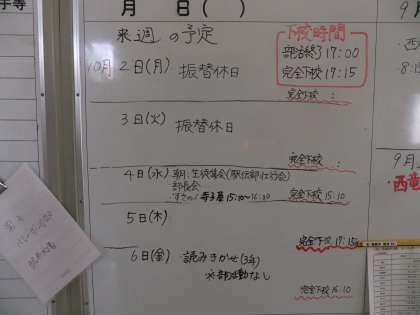 月 日( )
来週の予定
下校時間
部活終了 17:00
完全下校 17:15
10月2日(月) 振替休日
完全下校 :
3日(火) 振替休日
完全下校 :
4日(水) 朝:生徒集会(駅伝部壮行会)
部長会
寺子屋 15:10〜16:10
完全下校 15:10
5日(木)
完全下校 17:15
6日(金) 読みきかせ(3年)
※部活動なし
完全下校 15:10
9月